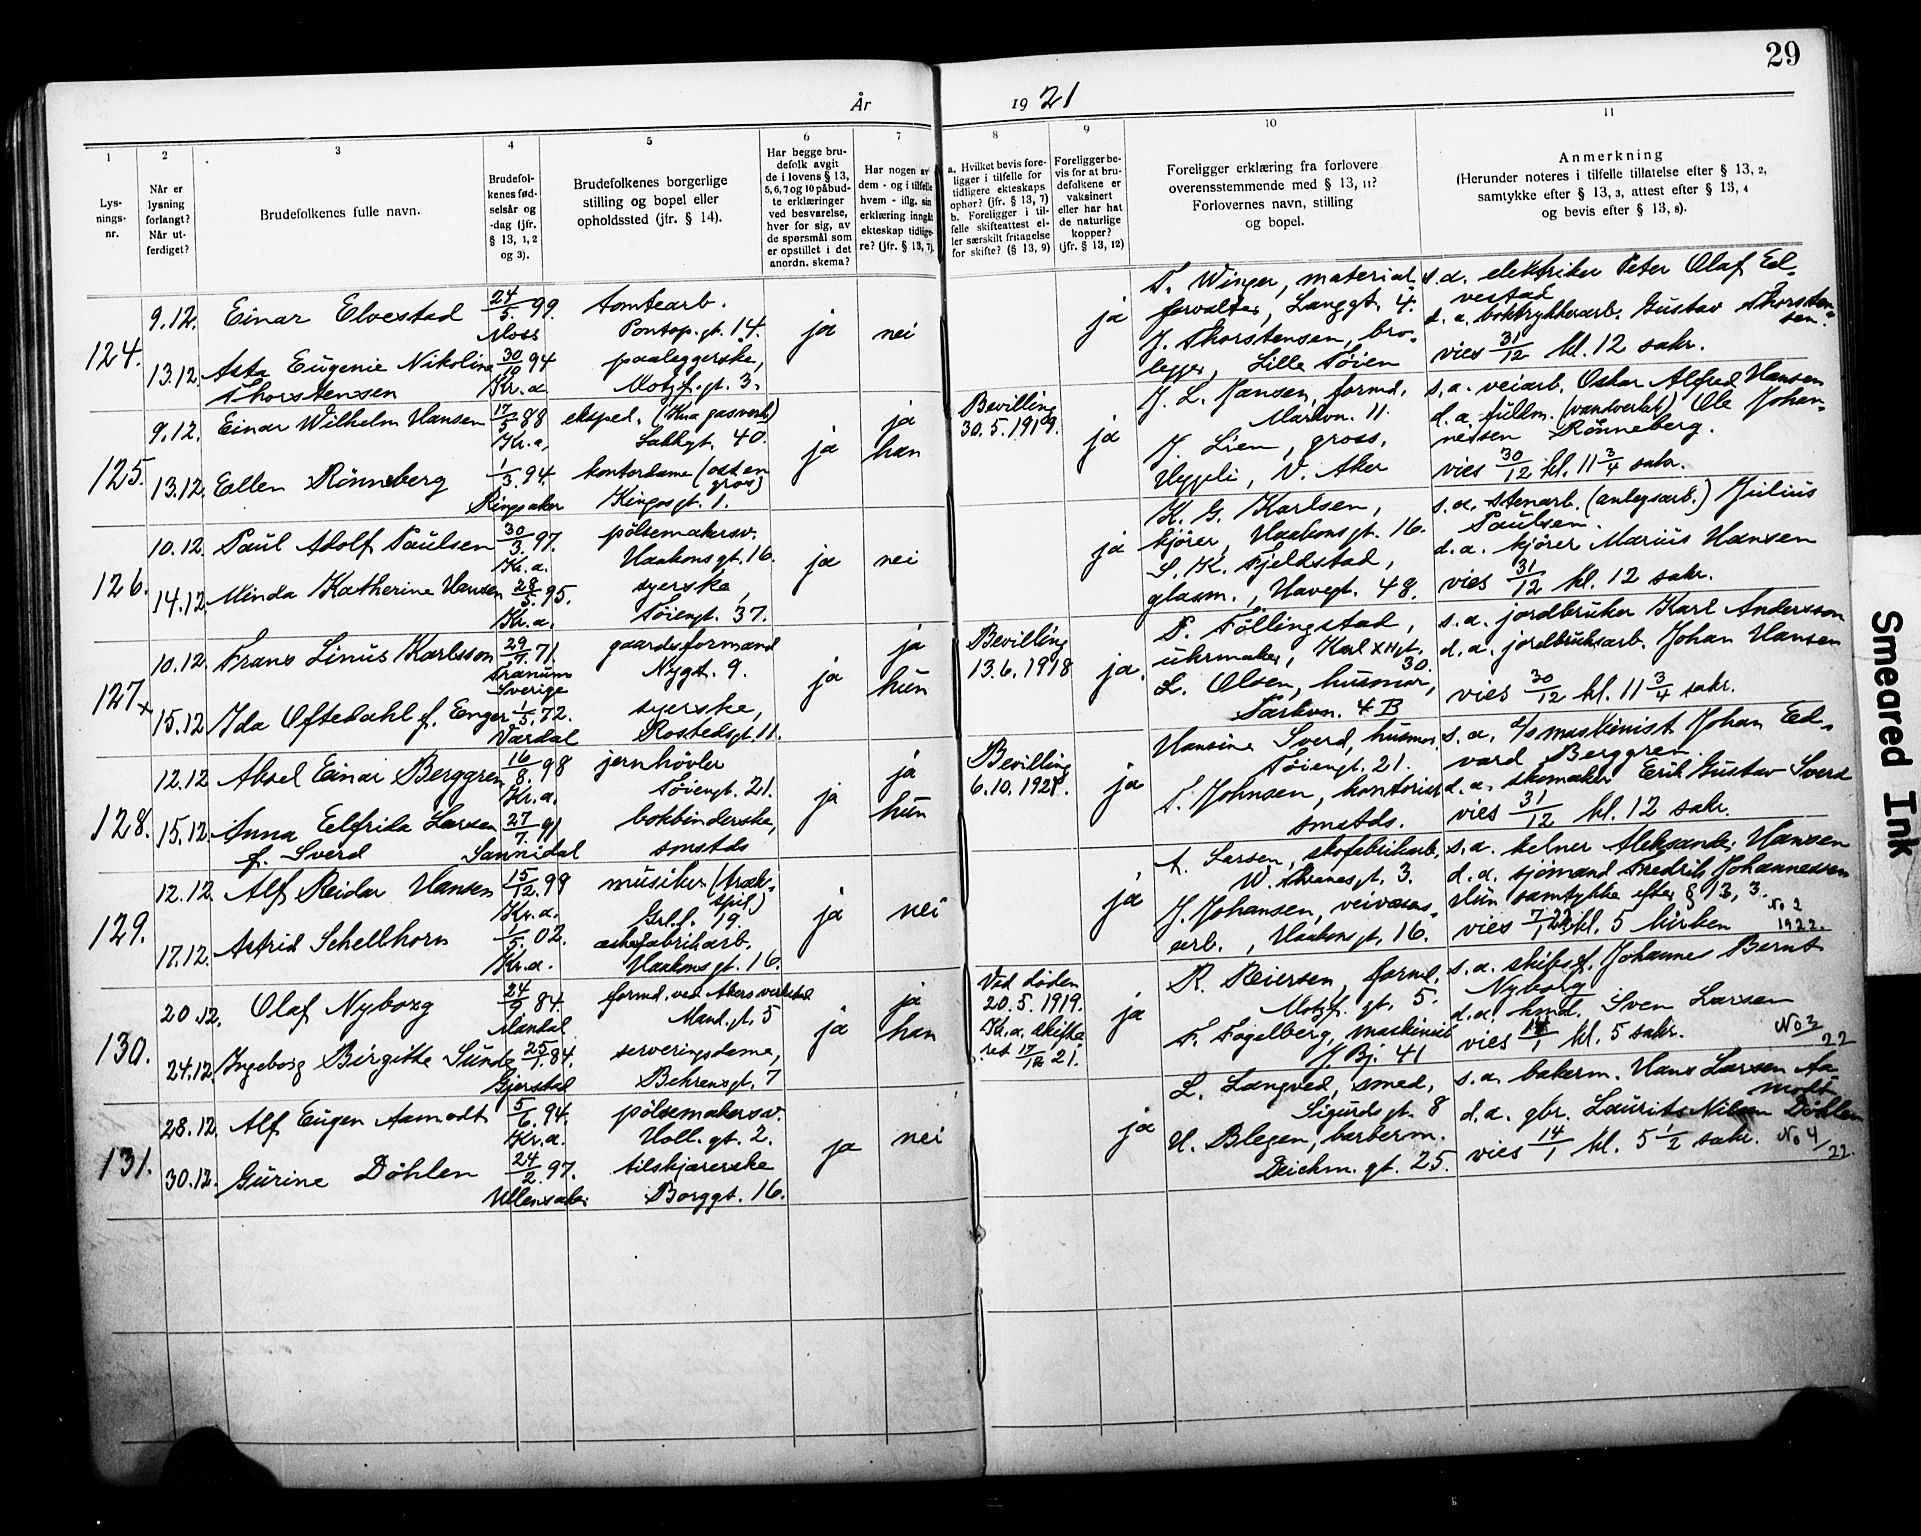 29
År 1921
1 2 3 4 5 6 7 8 9 10 11
Lysnings-nr.
Når er lysning forlangt? Når utferdiget?
Brudefolkenes fulle navn.
Brudefolkenes fødselsår og -dag (jfr. § 13, 1, 2 og 3).
Brudefolkenes borgerlige stilling og bopel eller opholdssted (jfr. § 14).
Har begge brudefolk avgit de i lovens § 13, 5, 6, 7 og 10 påbudte erklæringer ved besvarelse, hver for sig, av de spørsmål som er opstillet i det anordn. skema?
Har nogen av dem - og i tilfelle hvem - iflg. sin erklæring inngått ekteskap tidligere? (jfr. § 13, 7).
a. Hvilket bevis foreligger i tilfelle for tidligere ekteskaps ophør? (jfr. § 13, 7)
b. Foreligger i tilfelle skifteattest eller særskilt fritagelse for skifte? (§ 13, 9)
Foreligger bevis for at brudefolkene er vaksinert eller har hat de naturlige kopper? (jfr. § 13, 12)
Foreligger erklæring fra forlovere overensstemmende med § 13, 11? Forlovernes navn, stilling og bopel.
Anmerkning
(Herunder noteres i tilfelle tillatelse efter § 13, 2, samtykke efter § 13, 3, attest efter § 13, 4 og bevis efter § 13, 8).
124.
9.12. Einar Elvestad 24/5 99. Moss
tomtearb. Pontop. gt. 14.
13.12. Asta Eugenie Nikoline Thorstensen 30/10 94 Kr.a
paaleggerske, Motzf. gt. 3.
ja nei ja
T. Winger, material-
forvalter, Langgt. 4.
J. Thorstensen, bro-
legger, Lille Tøien
s.a. elektriker Peter Olaf El-
vestad
d.a. boktrykkerarb. Gustav Thorsten-
sen.
vies 31/12 kl. 12 sakr.
125.
9.12. Einar Wilhelm Hansen 88 Kr.a,
eksped. (Kra gasverk) Lakkgt. 40.
13.12. Ellen Rønneberg 1/3. 94. Ringsaker
kontordame (ost en gros) Kingosgt. 1.
ja
ja han
Bevilling
30.5.1919.
ja
J. L. Hansen, formd,
Markvn. 11.
J. Lien, gross,
Heggeli, V. Aker
s.a. veiarb. Oskar Alfred Hansen
d.a. fullm. (vandverket) Ole Johan-
nessen Rønneberg.
vies 30/12 kl. 11 3/4 sakr.
126.
10.12. Paul Adolf Paulsen 30/3. 97. Kr.a.
pølsemakersv. Haakonsgt. 16.
14.12 Minda Katherine Hansen 28/5. 95. Kr.a.
syerske, Tøiengt. 37.
ja nei ja
K. G. Karlsen,
kjører, Haakonsgt. 16.
S. K. Fjeldstad,
glasm., Havegt. 48.
s.a. stenarb. (anlegsarb.) Julius
Paulsen.
d.a. kjører Marius Hansen
vies 31/12 kl. 12 sakr.
127 x
10.12. Frans Linus Karlsson 29/9. 71. Tranum Sverige
gaardsformand Nygt. 9.
15.12 Ida Oftedahl f. Enger 1/5. 72. Vardal
syerske, Rostedsgt. 11.
ja
ja hun
Bevilling
13.6.1918
ja.
P. Föllingstad,
uhrmaker, Karl XII gt. 30.
L. Olsen, husmor,
Parkvn. 4 B
s.a. jordbruker Karl Andersson
d.a. jordbruksarb. Johan Hansen
vies 30/12 kl. 11 3/4 sakr.
128.
12.12 Aksel Einar Berggren 16/8. 98 Kr.a.
jernhøvler Tøiengt. 21.
15.12. Anna Elfrida Larsen f. Sverd 27/7. 91 Sannidal
bokbinderske, smstds
ja
ja hun
Bevilling
6.10.1921.
ja
Hansine Sverd, husmor,
Tøiengt. 21.
T. Johnsen, kontorist
smstds.
s.a. d/s maskinist Johan Ed-
vard Berggren.
d.a. skomaker Erik Gustav Sverd
vies 31/12 kl. 12 sakr.
129.
12.12. Alf Reidar Hansen 15/12. 99 Kr.a.
musiker (trækspil.) Grl.l. 19.
17.12. Astrid Schellhorn 1/5. 02. Kr.a.
fabrikarb. Haakonsgt. 16.
ja nei ja
A. Larsen, skofabrikarb.
W. Thranesgt. 3.
J. Johansen, veivæsens-
arb., Haakonsgt. 16.
s.a. kelner Aleksander Hansen
d.a. sjømand Fredrik Johannessen
Hun samtykke efter § 13, 3.
vies 7/1 22 kl. 5 kirken No 2 1922.
130.
20.12. Olaf Nyborg 24/9 84. Mandal
formd. ved Akers verksted Mand. gt. 5
24.12. Ingeborg Birgitte Sunde 25/7. 84. Gjerstad
serveringsdame, Behrensgt. 7
ja
ja han
Ved døden
20.5.1919.
Kr.a. skifte-
ret 17/12 21.
ja
R. Reiersen, formd.
Motzf. gt. 5.
F. Fogelberg, maskinist
J. Bj. 41
s.a. skibsf. Johannes Bernt
Nyborg
d.a. hmd. Sven Larsen
vies 14/1 kl. 5 sakr. No 3/22
131.
28.12. Alf Eugen Aamodt 5/6. 94. Kr.a.
pølsemakersv. Holl. gt. 2.
30.12. Gurine Døhlen 24/2. 97. Ullensaker
tilskjærerske Borggt. 16.
ja nei ja
L. Langved, smed,
Sigurdsgt. 8
H. Blegen, barberm.
Deichm. gt. 25.
s.a. bakerm. Hans Larsen Aa-
modt
d.a. gbr. Laurits Nilsen Døhlen
vies 14/1 kl. 5 1/2 sakr. No 4/22.
Smeared Ink